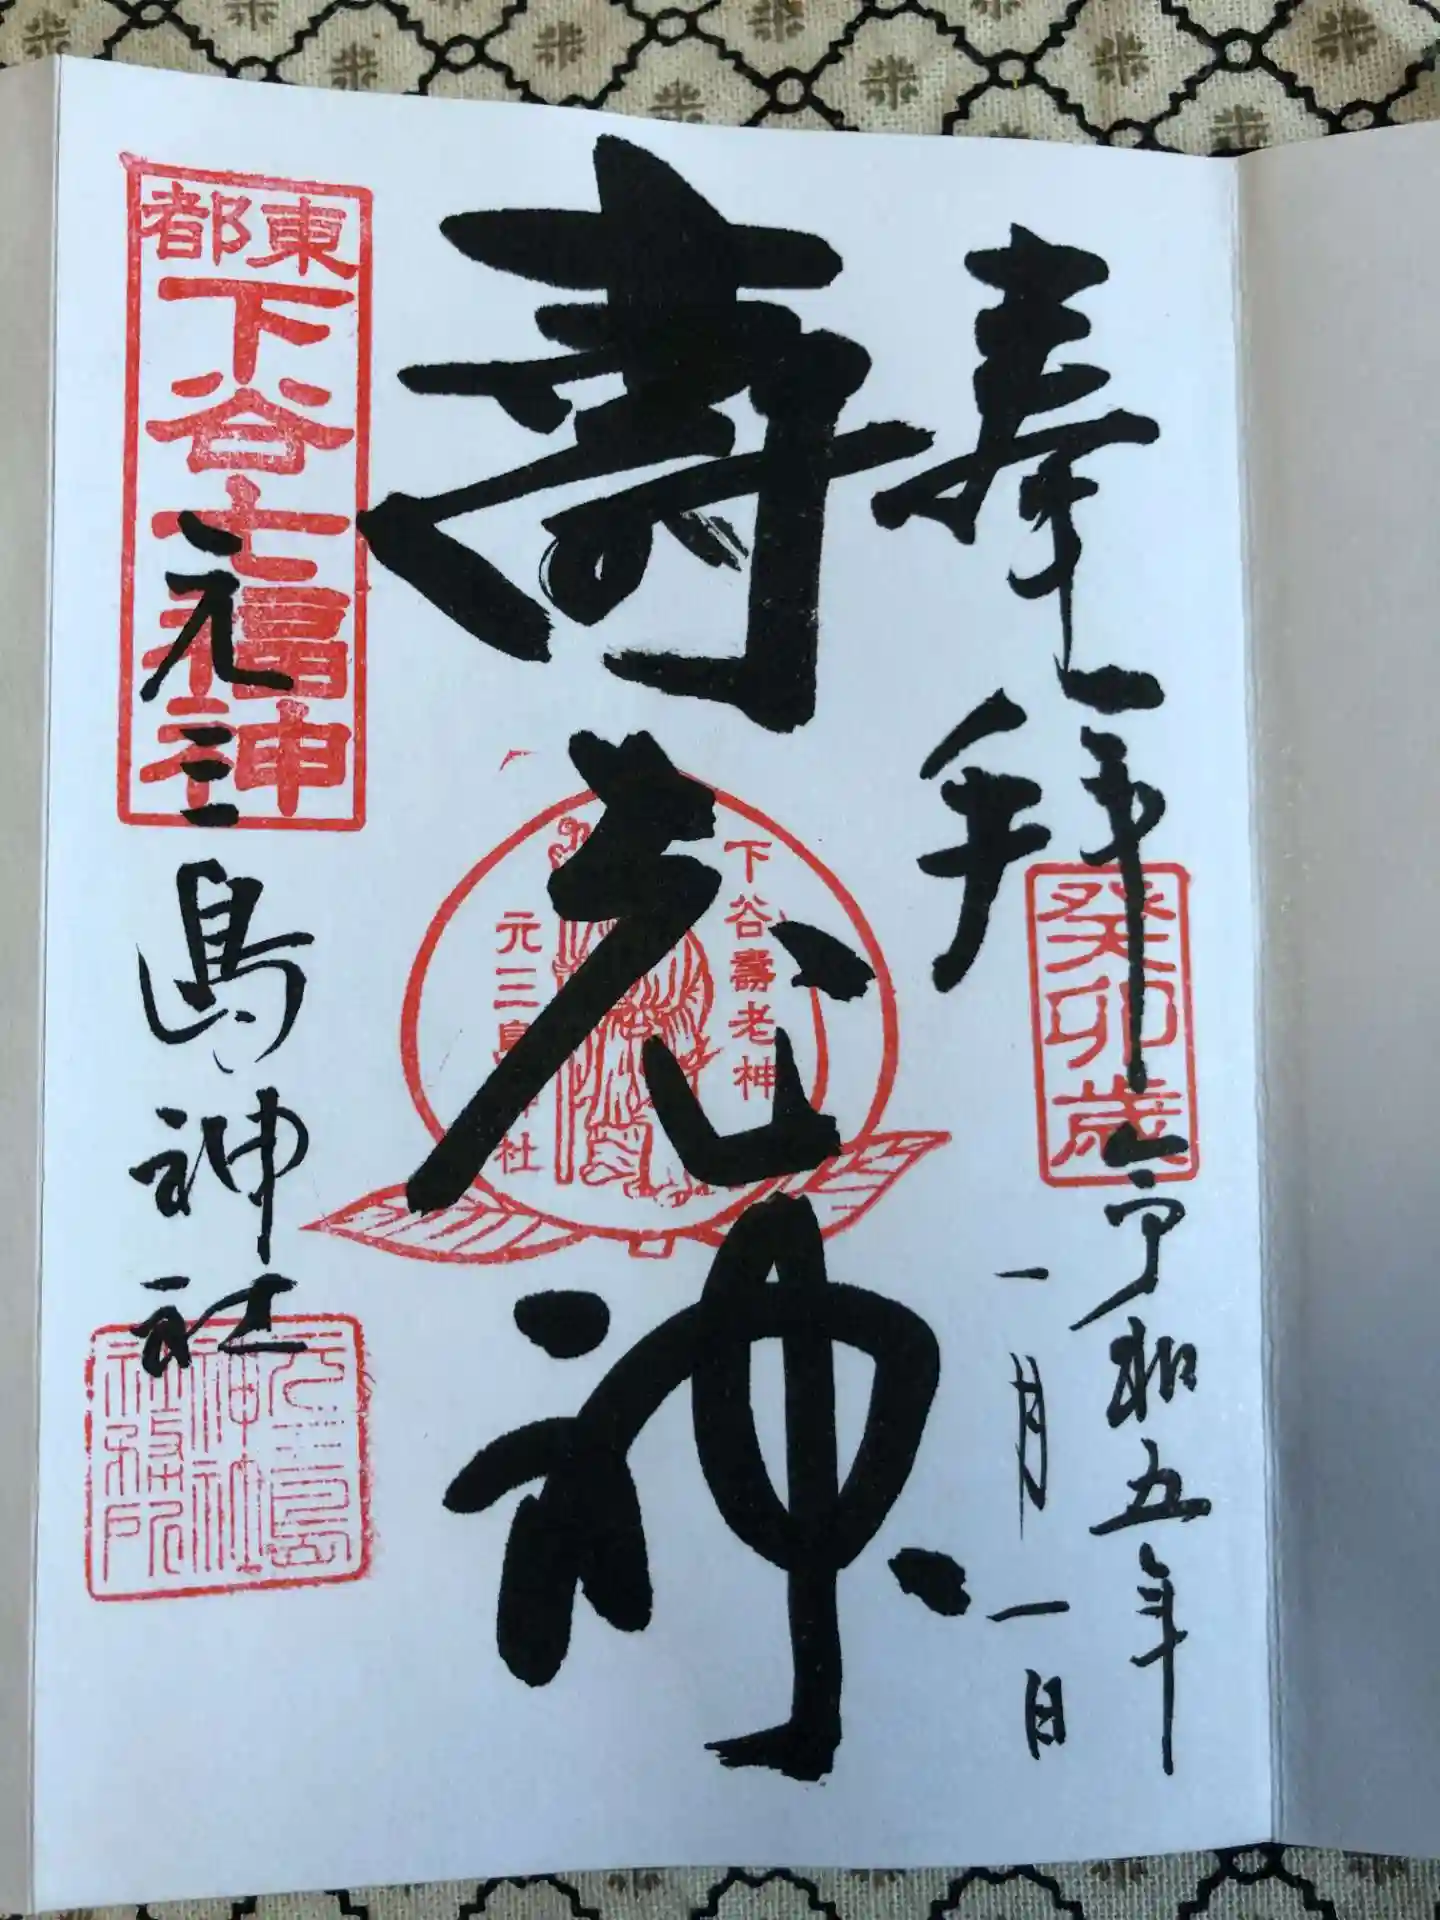 奉拝
癸卯歳
令和五年
一月一日
壽老神
下谷壽老神
元三島神社
東都
下谷七福神
元三島神社
元三島
神社
社務所